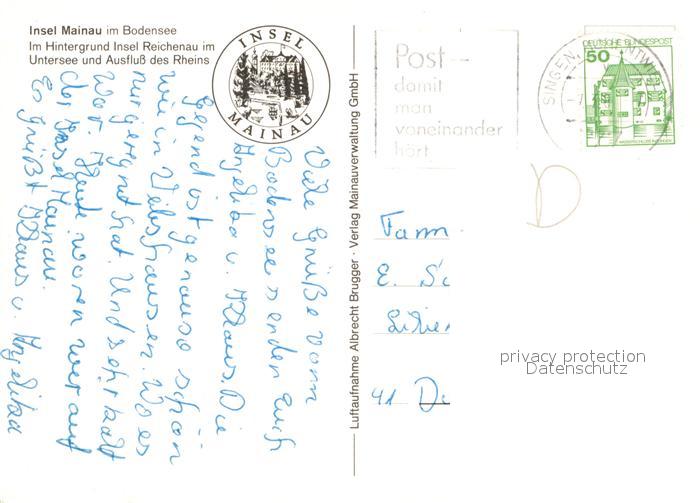 Insel Mainau im Bodensee
Im Hintergrund Insel Reichenau im
Untersee und Ausfluß des Rheins
INSEL
MAINAU
Viele Grüße vom
Bodensee senden Euch
Angelika u. Klaus. Die
Gegend ist genauso schön
wie in Wolfshausen. Wo es
nur geregnet hat. Und sehr kalt
war. Heute waren wir auf
der Insel Mainau.
Es grüßt Klaus u. Angelika
Luftaufnahme Albrecht Brugger · Verlag Mainauverwaltung GmbH
Post –
damit
man
voneinander
hört
SINGEN
DEUTSCHE BUNDESPOST
50
Fam
E. Sc
41 Du
privacy protection
Datenschutz